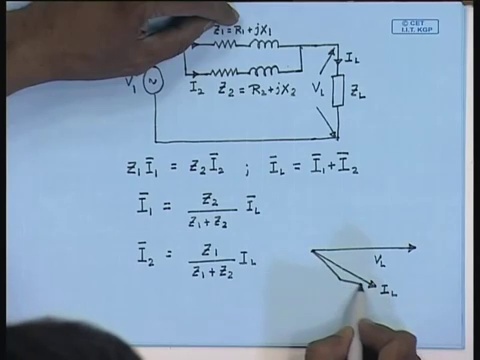 © CET
I.I.T. KGP
Z1 = R1 + jX1
IL
V1
I2
Z2 = R2 + jX2
VL
ZL
Z1 Ī1 = Z2 Ī2 ; ĪL = Ī1 + Ī2
Ī1 = Z2 / (Z1 + Z2) ĪL
Ī2 = Z1 / (Z1 + Z2) IL
VL
IL